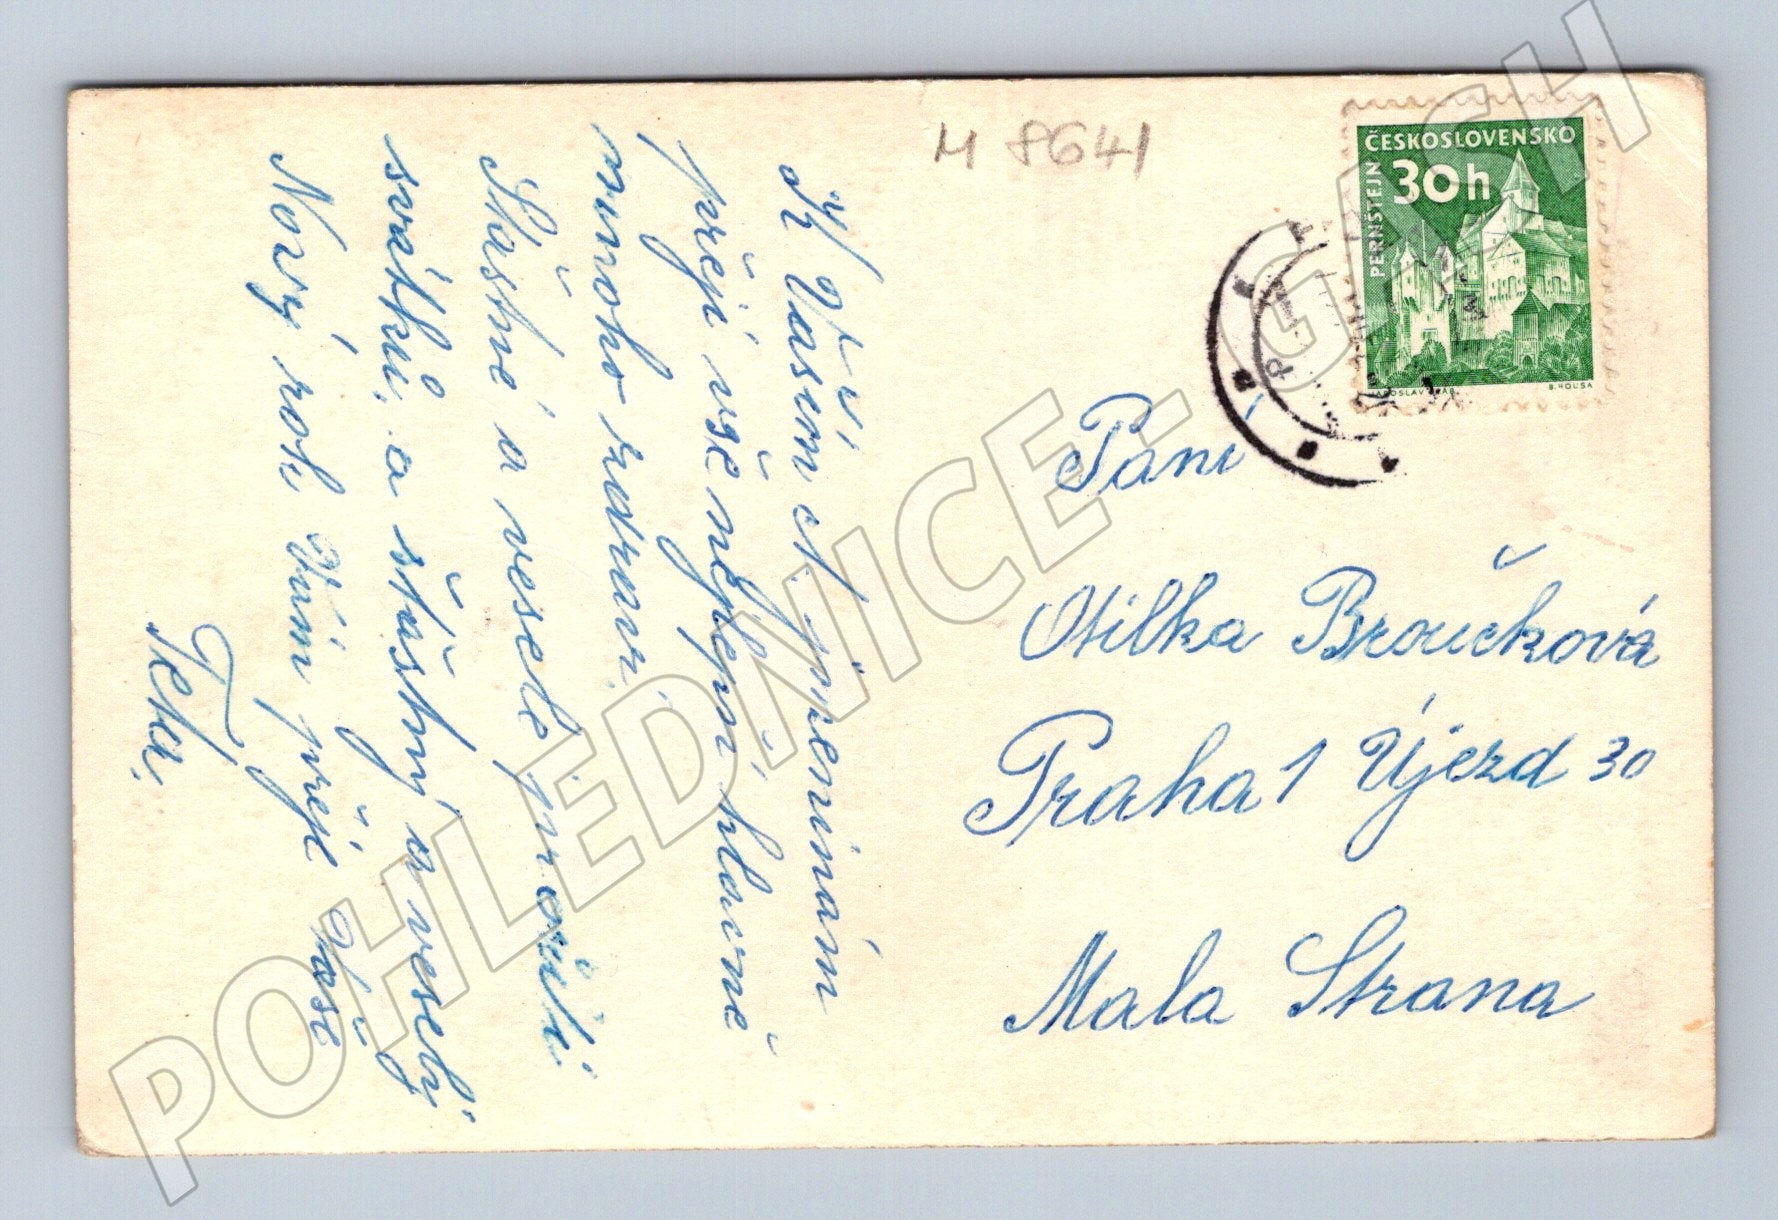 K/ Vašim sv. jmeninám
přeji vše nejlepší, hlavně
mnoho zdraví.
Šťastné a veselé prožití
svátků, a šťastný a veselý
Nový rok Vám přeje Vaše
M 8641
ČESKOSLOVENSKO
30h
PERNŠTEJN
JAROSLAV
B. HOUSA
Paní
Otilka Broučková
Praha 1 Újezd 30
Mala Strana
POHLEDNICE - GASH